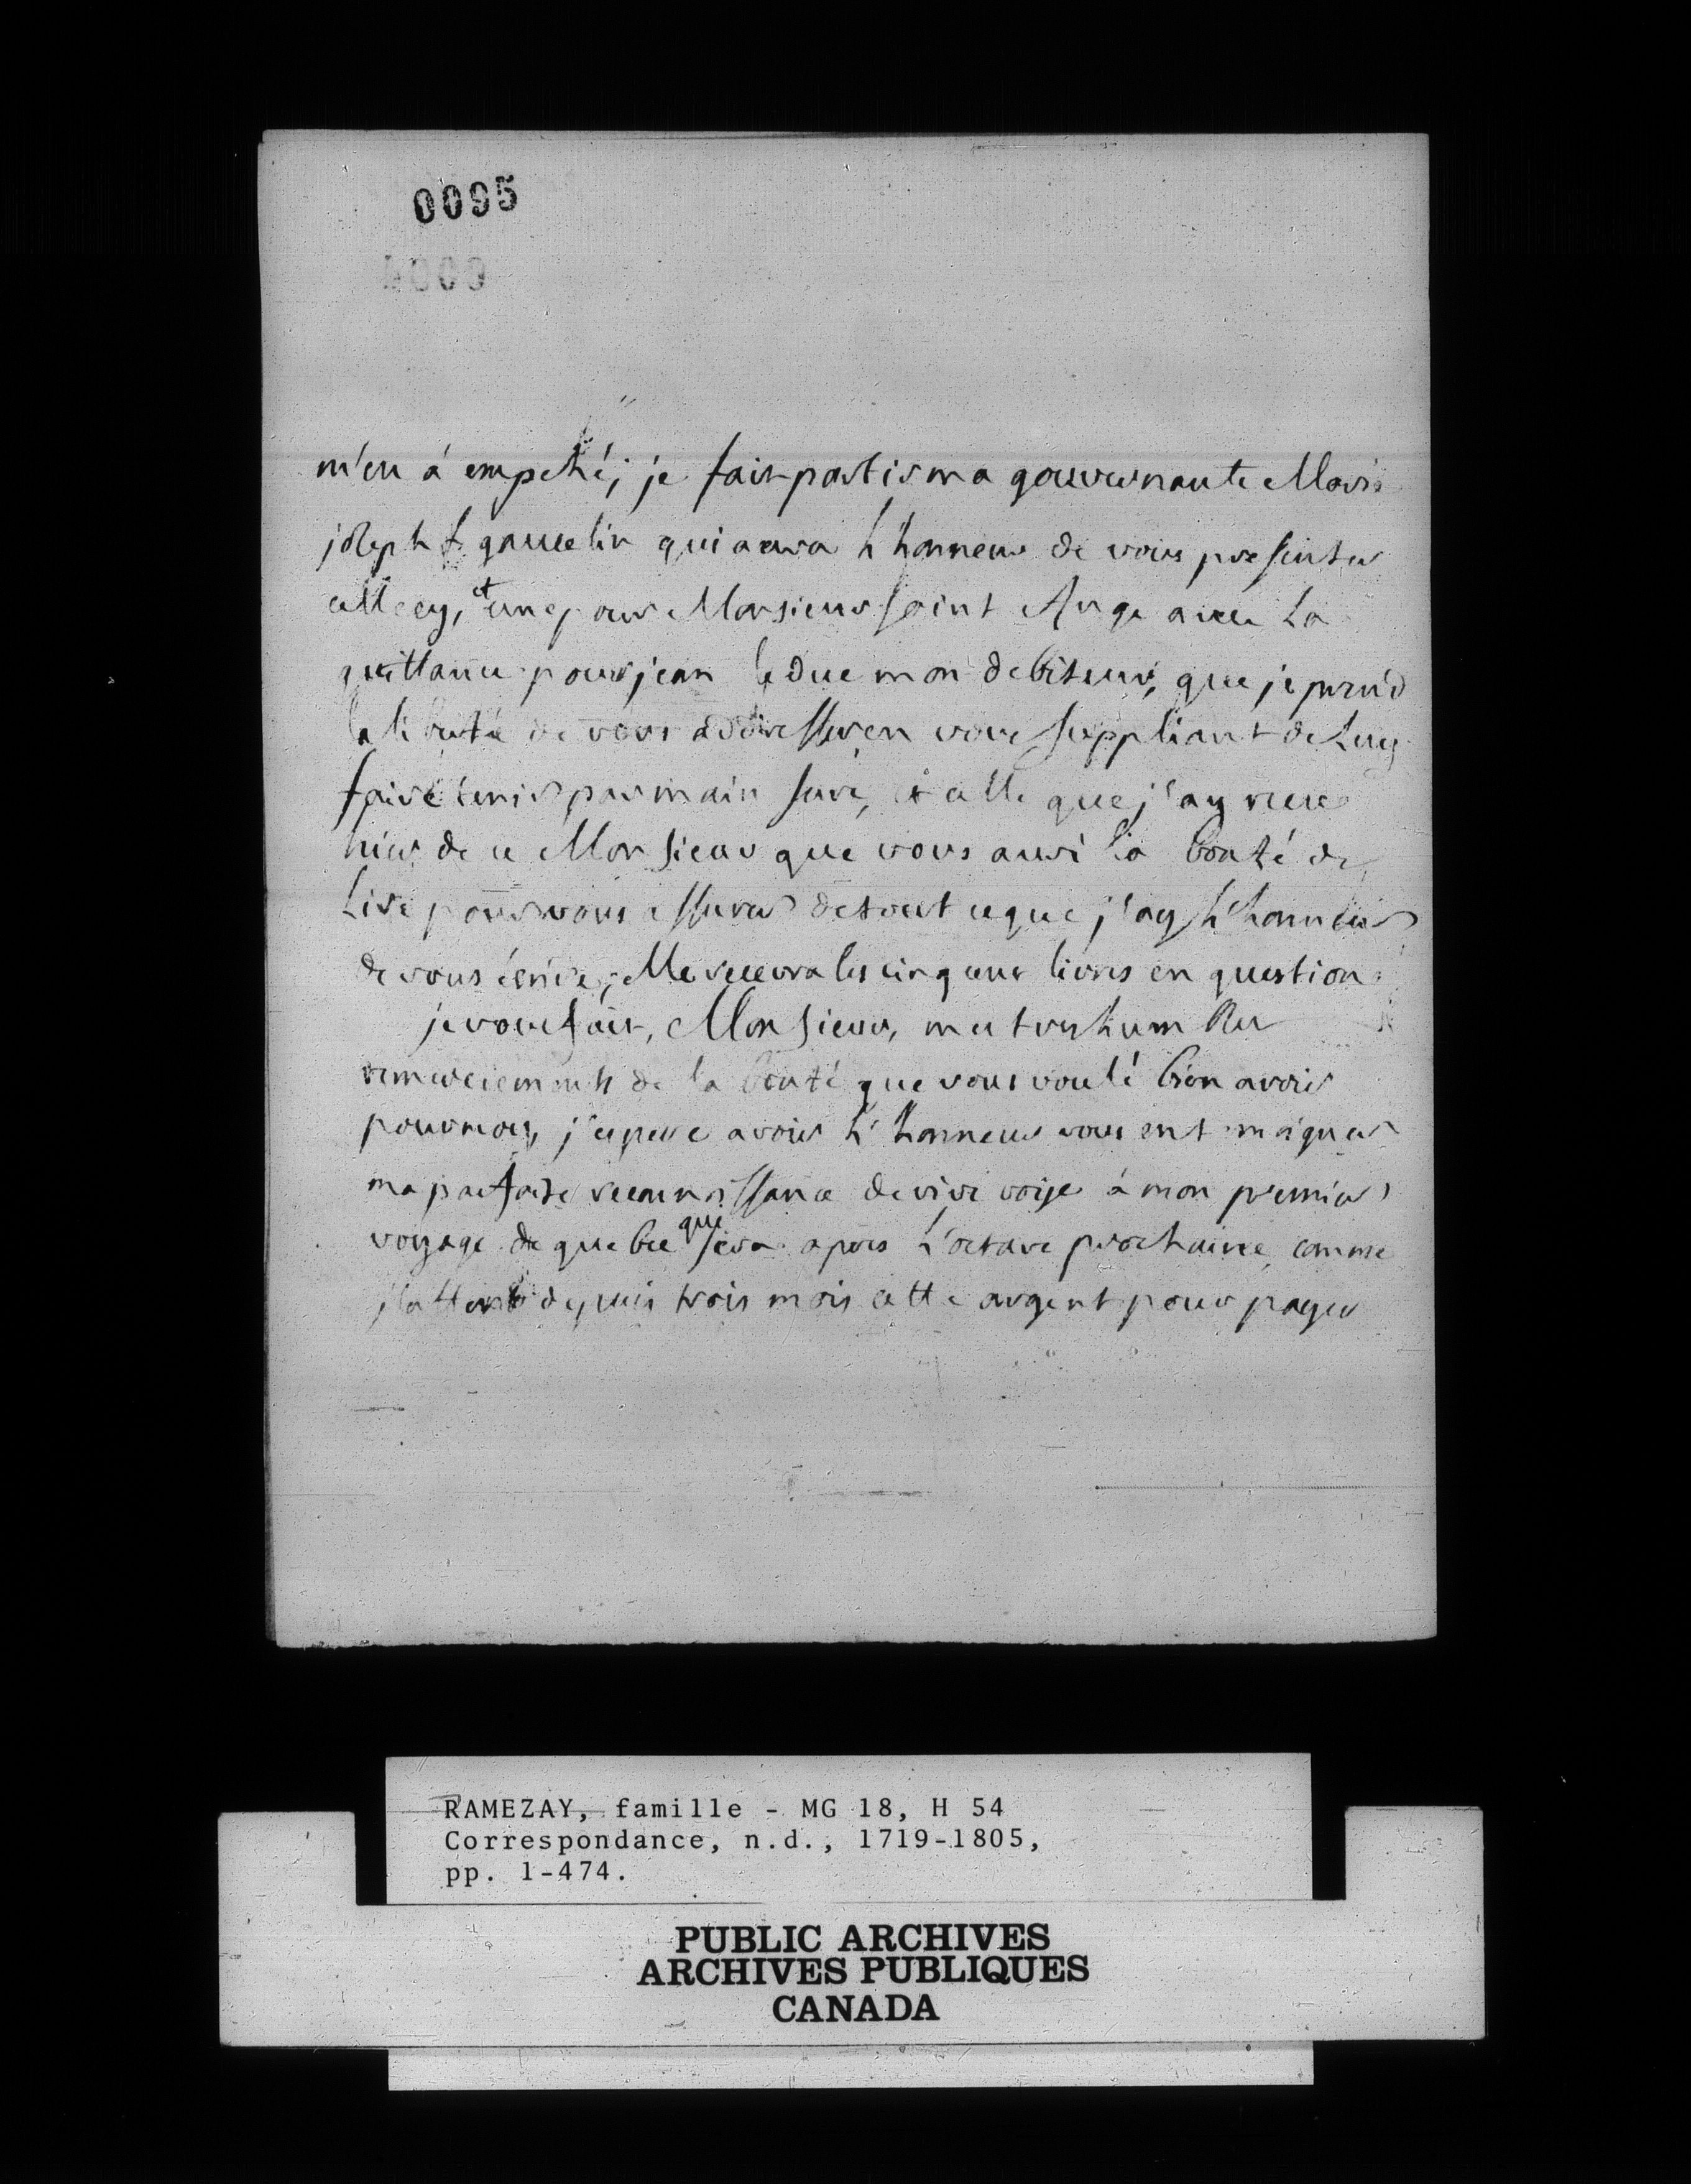 0095
m'en á empeché; je fait partir ma gouvernante Marie
joseph gaucelin qui aura l'honneur de vous presenter
cette cy, et une pour Monsieur saint Ange avec la
quittance pour jean leduc mon debiteur, que je prend
la liberté de vous addresser en vous suppliant de luy
faire tenir par main sure, et cette que j'ay recue
hier de ce Monsieur que vous auré la bonté de
lire pour vous assurer de tout ce que j'ay l'honneur
de vous écrire; elle recevra les cinq cent livres en question
je vous fait, Monsieur, mes tres humbles
remerciements de la bonté que vous voulé bien avoir
pour moy, j'espere avoir l'honneur vous en temoigner
ma parfaite reconnoissance de vive voije á mon premier
voyage de quebec qui sera apres l'octave prochaine, comme
j'attends depuis trois mois cette argent pour payer
RAMEZAY, famille - MG 18, H 54
Correspondance, n.d., 1719-1805,
pp. 1-474.
PUBLIC ARCHIVES
ARCHIVES PUBLIQUES
CANADA